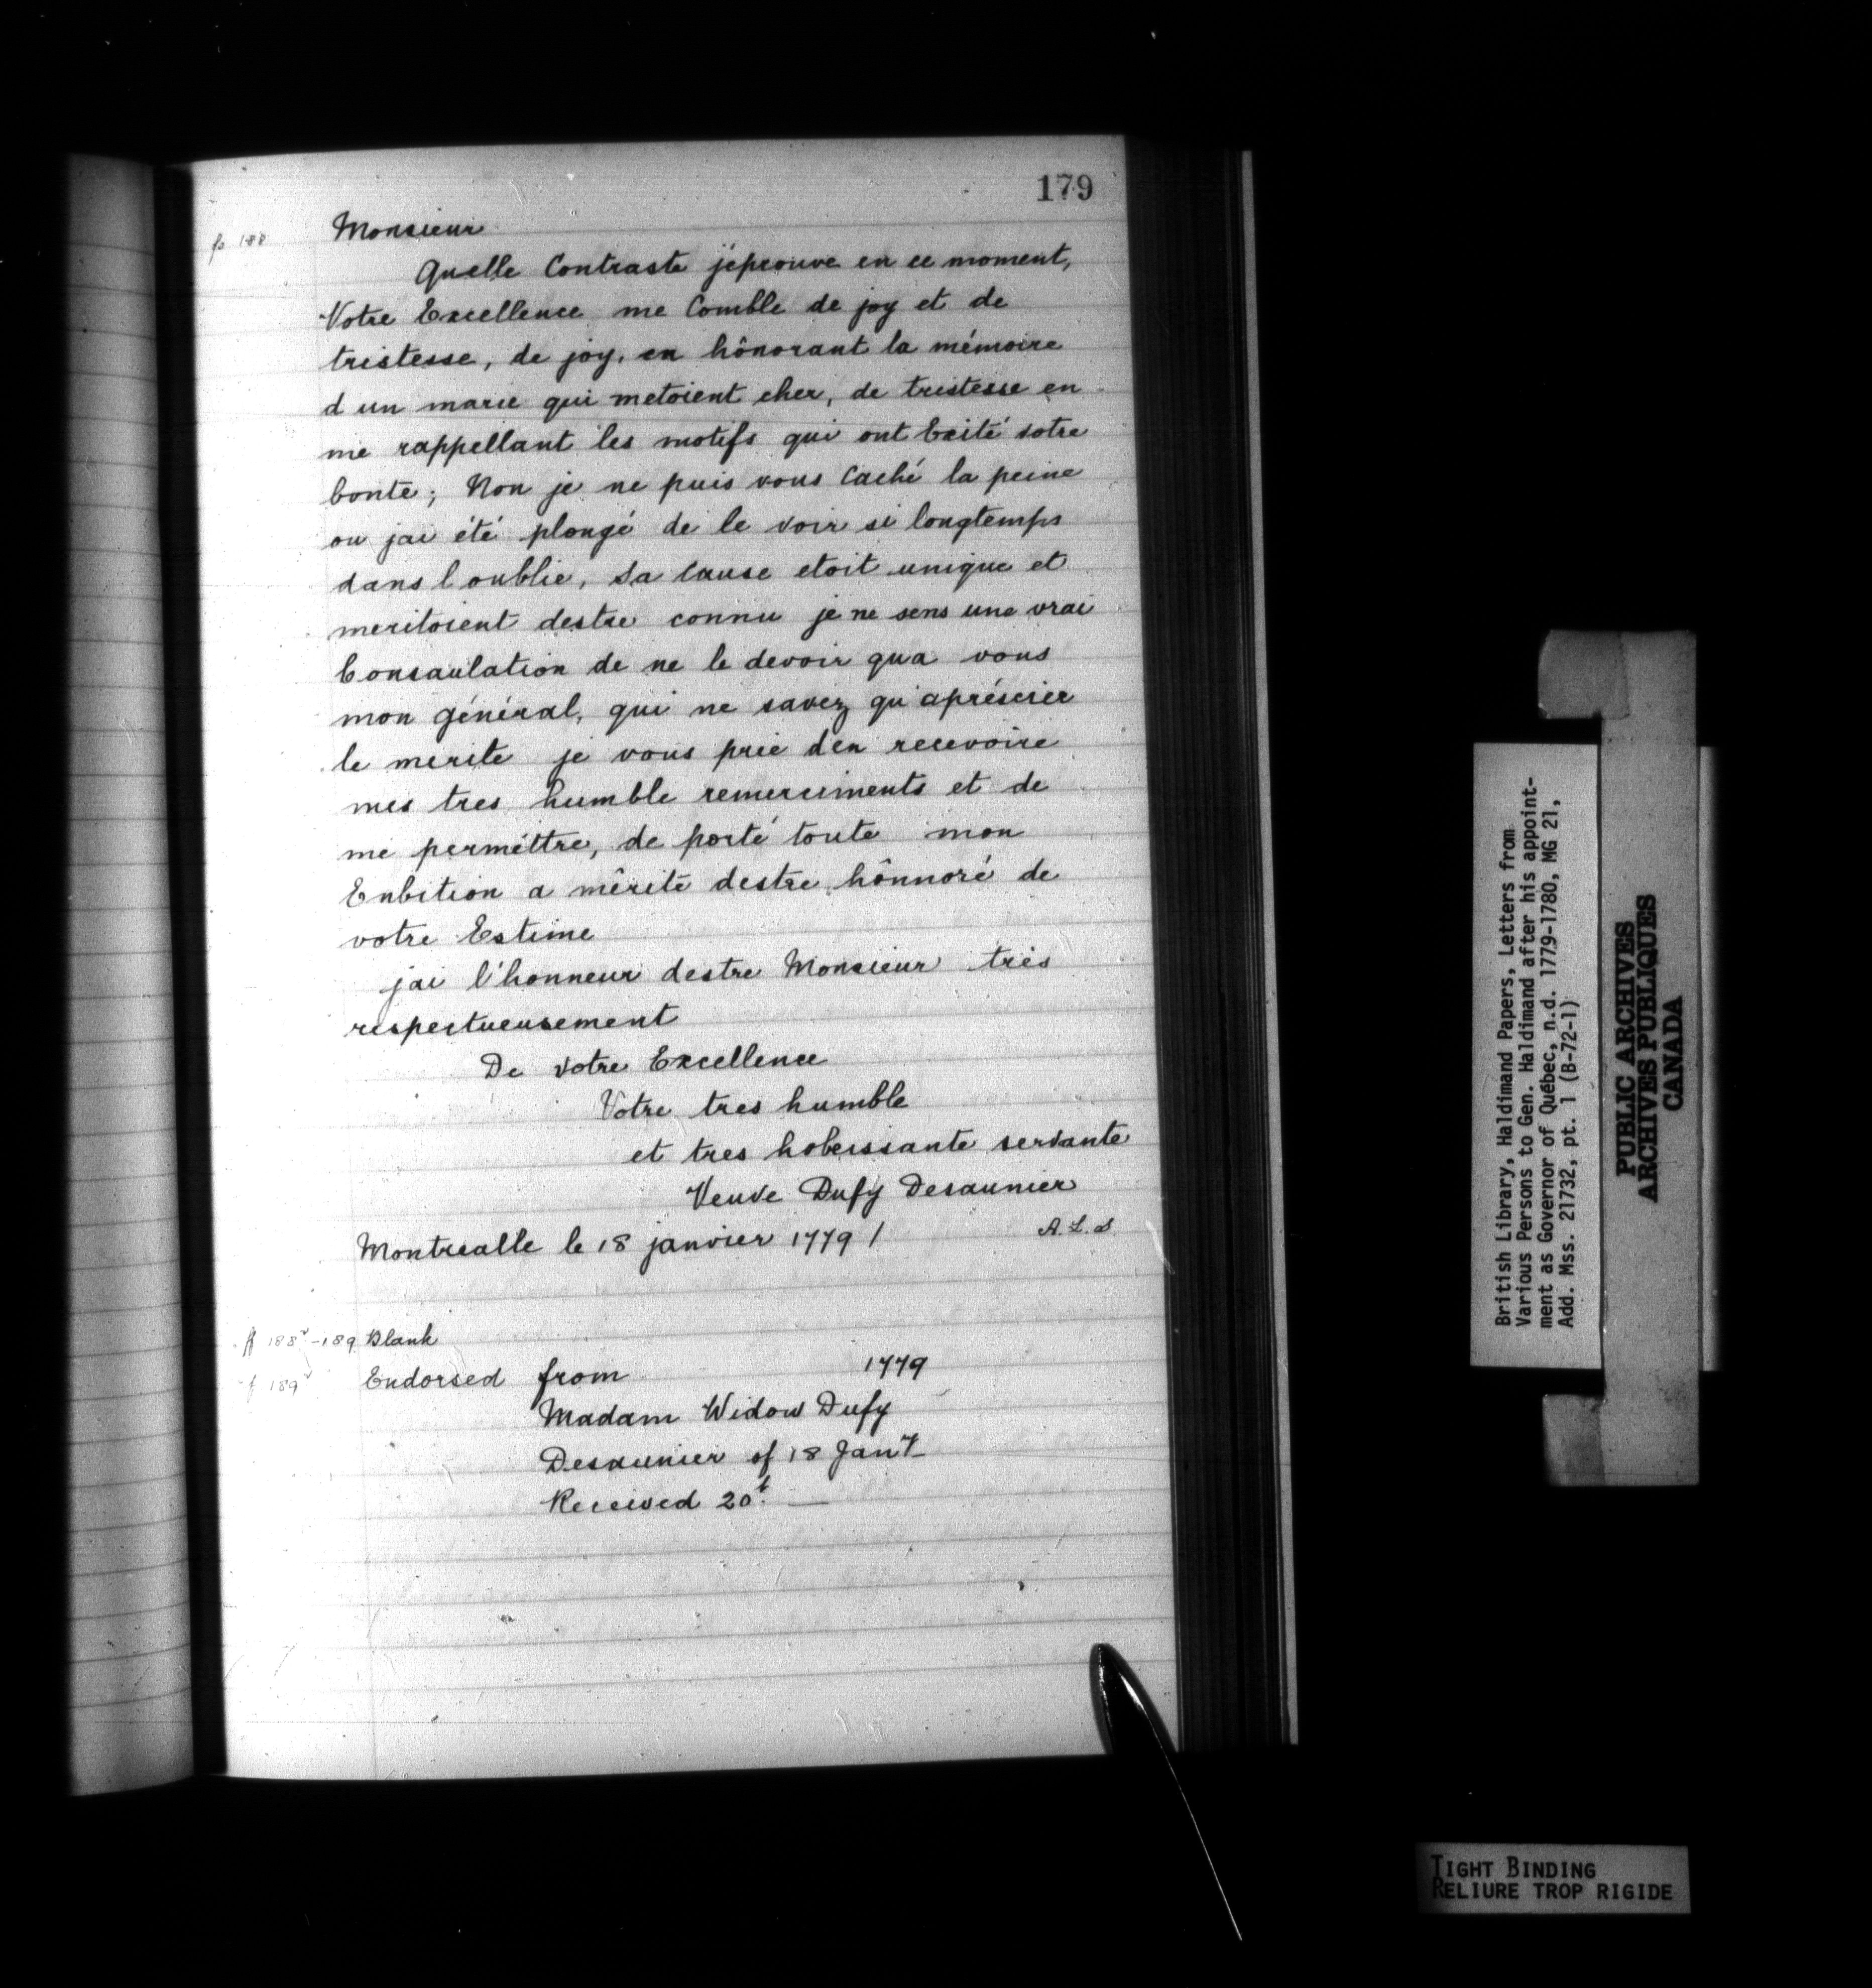 179
fo 188
Monsieur
Quelle Contraste j'éprouve en ce moment,
Votre Excellence me Comble de joy et de
tristesse, de joy, en hônorant la mémoire
d un marie qui metoient cher, de tristesse en
me rappellant les motifs qui ont Exité votre
bonte; Non je ne puis vous Caché la peine
ou jai été plongé de le voir si longtemps
dans l oublie, Sa Cause etoit unique et
meritoient destre connu je ne sens une vrai
Consaulation de ne le devoir qua vous
mon général, qui ne savez qu'apréscier
le merite je vous prie den recevoire
mes tres humble remerciments et de
me permettre, de porté toute mon
Enbition a mêrité destre hônnoré de
votre Estime
jai l'honneur destre Monsieur très
respectueusement
De Votre Excellence
Votre tres humble
et tres hobeissante servante
Veuve Dufy Desaunier
Montrealle le 18 janvier 1779 /
A. L. S
ff 188v - 189 Blank
f 189v Endorsed from 1779
Madam Widow Dufy
Desaunier of 18 Jany
Received 20t. —
British Library, Haldimand Papers, Letters from
Various Persons to Gen. Haldimand after his appoint-
ment as Governor of Québec, n.d. 1779-1780, MG 21,
Add. Mss. 21732, pt. 1 (B-72-1)
PUBLIC ARCHIVES
ARCHIVES PUBLIQUES
CANADA
TIGHT BINDING
RELIURE TROP RIGIDE